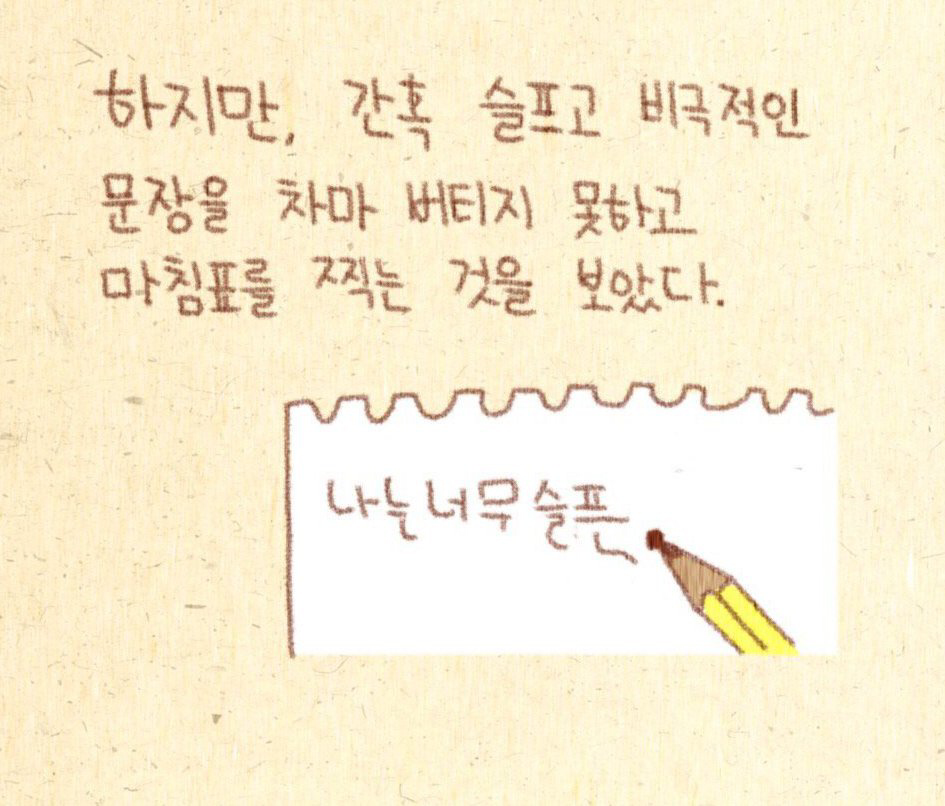 하지만, 간혹 슬프고 비극적인
문장을 차마 버티지 못하고
마침표를 찍는 것을 보았다.
나는 너무 슬픈